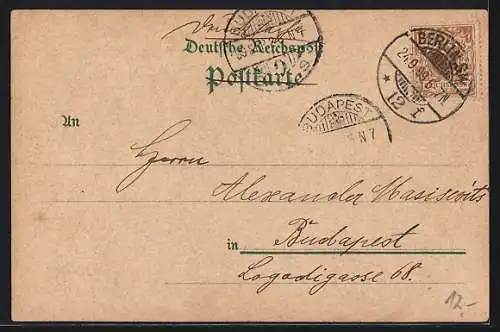 Deutsche Reichspost
Postkarte
BUDAPEST
BERLIN S.W.
24.9.99
* 12 f
BUDAPEST
N7
An
Herrn
Alexander Masisovits
in Budapest
Logodigasse 68.
12.-